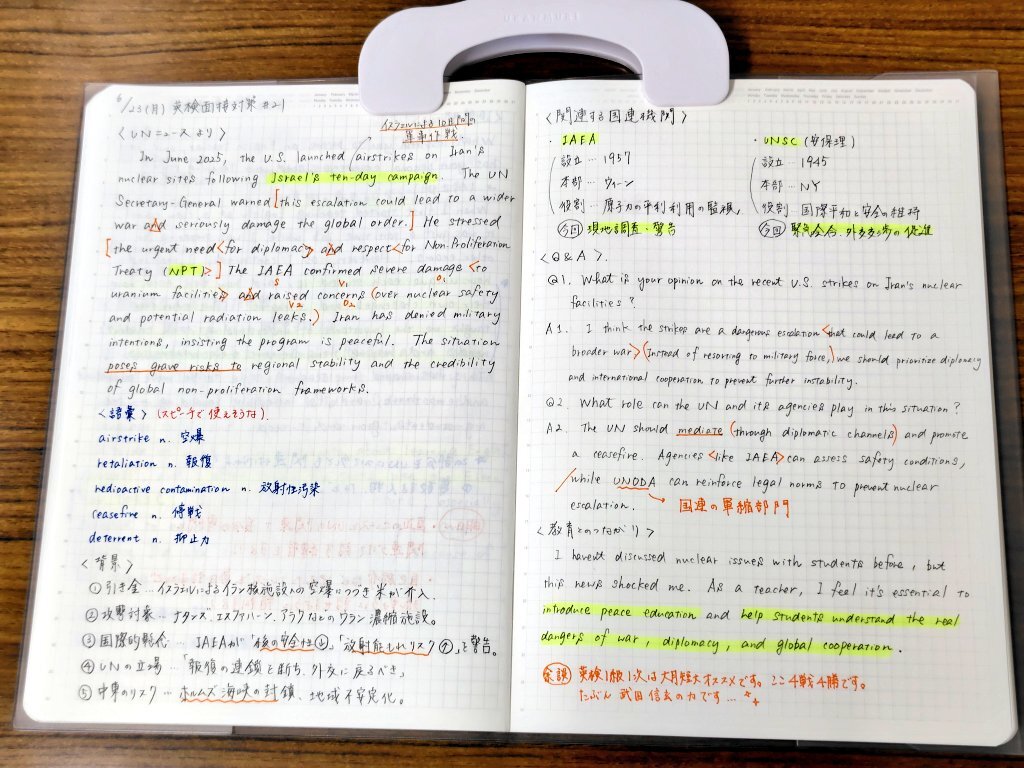 6/23(月) 英検面接対策 #21
〈UNニュースより〉
イスラエルによる10日間の
軍事作戦.
In June 2025, the U.S. launched airstrikes on Iran's
nuclear sites following Israel's ten-day campaign. The UN
Secretary-General warned [this escalation could lead to a wider
war and seriously damage the global order.] He stressed
[the urgent need <for diplomacy and respect <for Non-Proliferation
Treaty (NPT)>.] The IAEA confirmed severe damage <to
S V1 O1
uranium facilities> and raised concerns (over nuclear safety
V2 O2
and potential radiation leaks.) Iran has denied military
intentions, insisting the program is peaceful. The situation
poses grave risks to regional stability and the credibility
of global non-proliferation frameworks.
〈語彙〉(スピーチで使えそうな).
airstrike n. 空爆
retaliation n. 報復
redioactive contamination n. 放射性汚染
ceasefire n. 停戦
deterrent n. 抑止力
〈背景〉
①引き金…イスラエルによるイラン核施設への空爆につづき米が介入.
②攻撃対象…ナタンズ、エスファハーン、アラクなどのウラン濃縮施設。
③国際的 … IAEAが「核の安全性↓」「放射能もれリスク↑」と警告。
④UNの立場…「報復の連鎖を断ち、外交に戻るべき」
⑤中東のリスク…ホルムズ海峡の封鎖、地域不安定化。
〈関連する国連機関〉
・IAEA
設立…1957
本部…ウィーン
役割…原子力の平和利用の監視、
今回 現地調査、警告
・UNSC (安保理)
設立…1945
本部…NY
役割…国際平和と安全の維持
今回 緊急会合、外交 の促進
〈Q&A〉.
Q1. What is your opinion on the recent U.S. strikes on Iran's nuclear
facilities?
A1. I think the strikes are a dangerous escalation <that could lead to a
broader war> (Instead of resorting to military force,) we should prioritize diplomacy
and international cooperation to prevent further instability.
Q2. What role can the UN and its agencies play in this situation?
A2. The UN should mediate (through diplomatic channels) and promote
a ceasefire. Agencies <like IAEA> can assess safety conditions,
/while UNODA can reinforce legal norms to prevent nuclear
escalation.
→ 国連の軍縮部門
〈教育とのつながり〉
I haven't discussed nuclear issues with students before, but
this news shocked me. As a teacher, I feel it's essential to
introduce peace education and help students understand the real
dangers of war, diplomacy, and global cooperation.
余談 英検1級1次は大月短大オススメです。ここ4戦4勝です。
たぶん 武田信玄の力です…